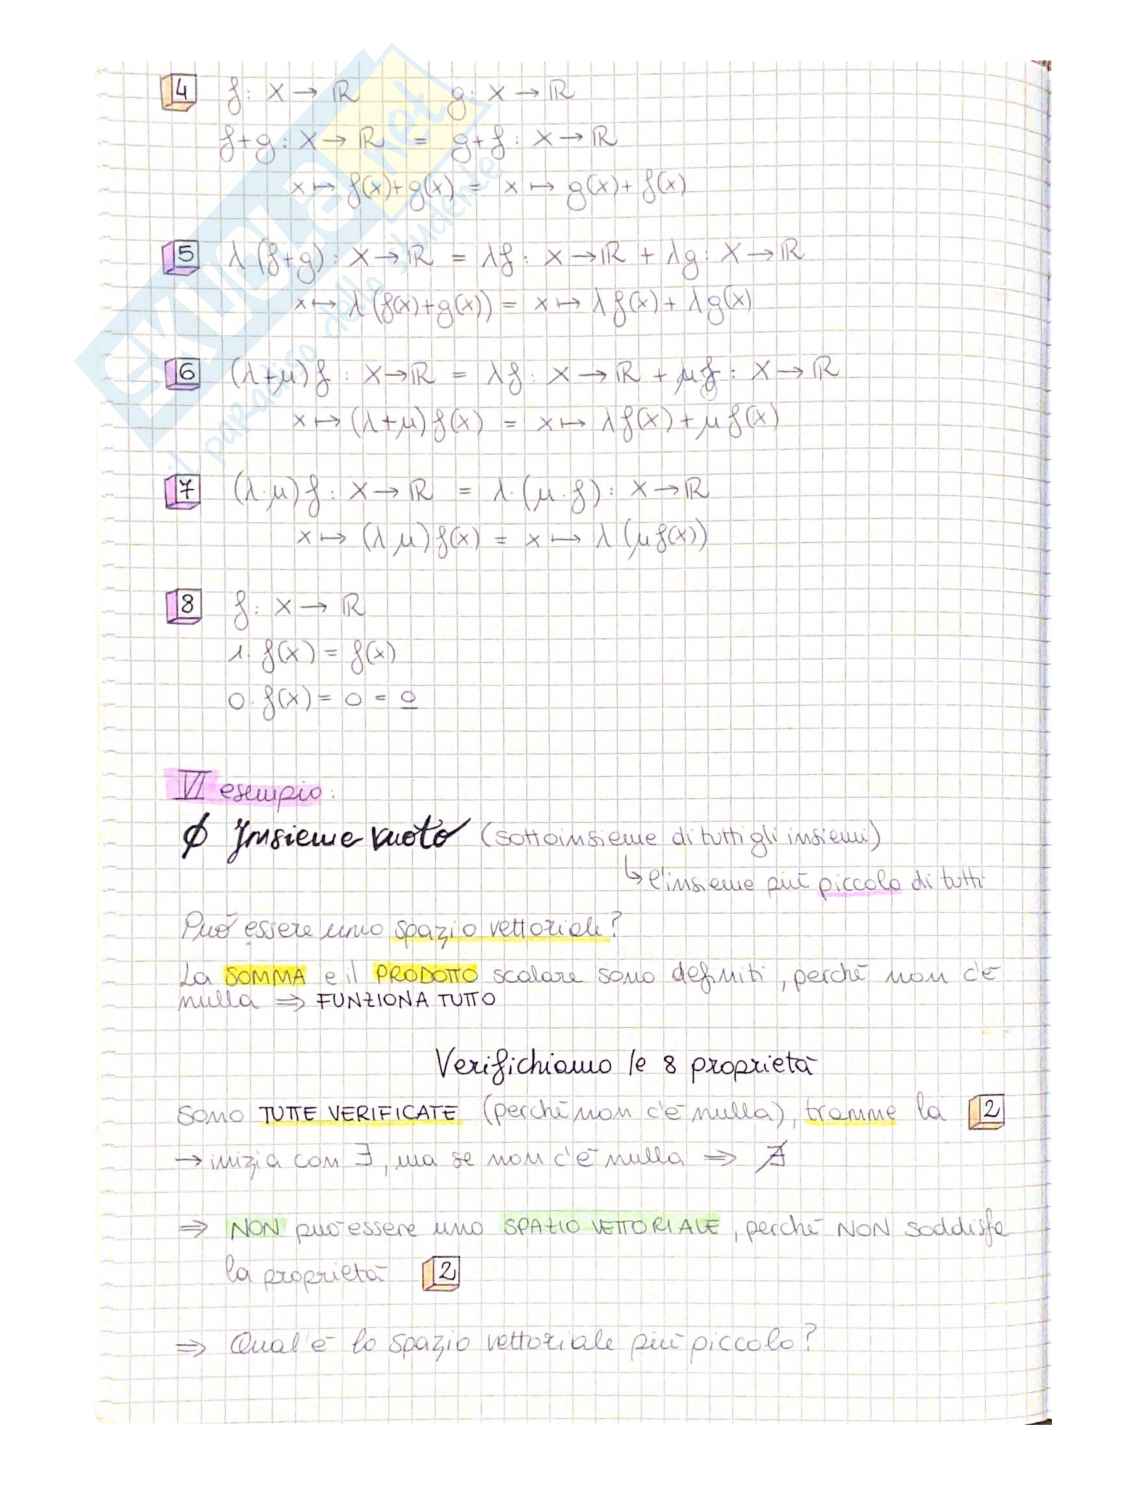 4 f: X → ℝ g: X → ℝ
f+g: X → ℝ = g+f: X → ℝ
x ↦ f(x)+g(x) = x ↦ g(x)+f(x)
5 λ(f+g): X → ℝ = λf: X → ℝ + λg: X → ℝ
x ↦ λ(f(x)+g(x)) = x ↦ λf(x)+λg(x)
6 (λ+μ)f: X → ℝ = λf: X → ℝ + μf: X → ℝ
x ↦ (λ+μ)f(x) = x ↦ λf(x)+μf(x)
7 (λ·μ)f: X → ℝ = λ·(μ·f): X → ℝ
x ↦ (λμ)f(x) = x ↦ λ(μf(x))
8 f: X → ℝ
1·f(x) = f(x)
0·f(x) = 0 = <u>0</u>
VI esempio:
∅ Insieme vuoto (sottoinsieme di tutti gli insiemi)
↳ l'insieme più piccolo di tutti
Può essere uno spazio vettoriale?
La SOMMA e il PRODOTTO scalare sono definiti, perchè non c'è
nulla ⇒ FUNZIONA TUTTO
Verifichiamo le 8 proprietà
Sono TUTTE VERIFICATE (perchè non c'è nulla), tranne la 2
→ inizia con ∃, ma se non c'è nulla ⇒ ∄
⇒ NON può essere uno SPAZIO VETTORIALE, perchè NON soddisfa
la proprietà 2
⇒ Qual è lo spazio vettoriale più piccolo?
SKUOLA.net
il paradiso dello studente